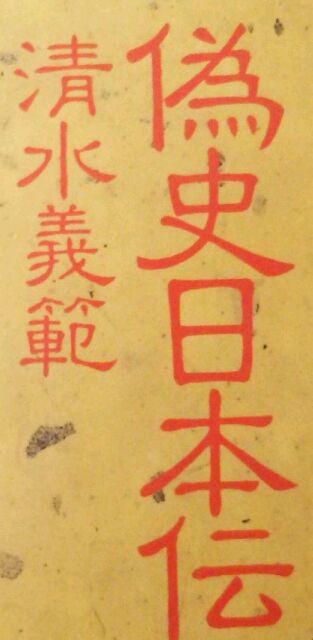 偽史日本伝
清水義範